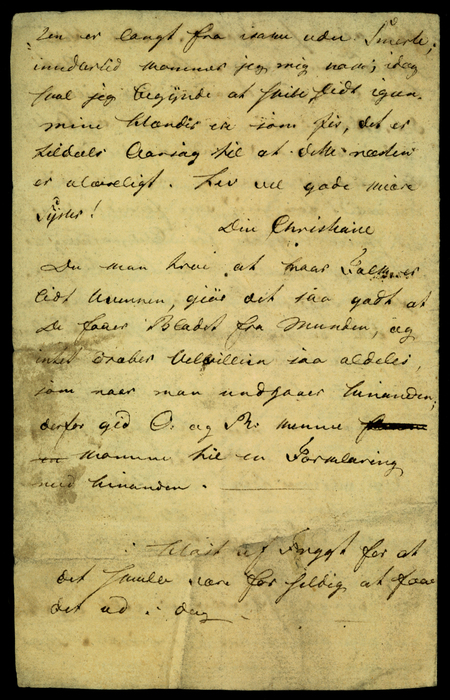 Den er langt fra isaune uden Smerte;
imidlertid kommer jeg mig nok; idag
skal jeg begynde at spise lidt igien
mine hænder er som Iis, det er
tildeels Aarsag til at dette næsten
er ulæseligt. Lev vel gode kiære
Syster!
Din Christiane
Du man troe at naar Folk
lidt kommen, giør det saa godt at
De faaer Bladet fra Munden, og
intet dræber Velvillien saa aldeles,
som naar man undgaaer hinanden;
derfor gid O: og Ph: kunne
komme til en Forklaring
med hinanden.
Hast af Frygt for at
det skulle være for sildig at faae
det ud i dag